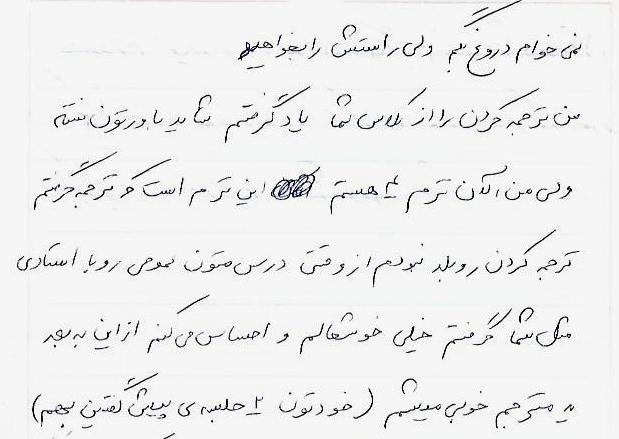 نمی خوام دروغ بگم ولی راستش را بخواهید
من ترجمه کردن را از کلاس شما یاد گرفتم شاید باورتون نشه
ولی من الان ترم ۴ هستم این ترم است که ترجمه گرفتم
ترجمه کردن رو بلد نبودم از وقتی درس متون عمومی رو با استادی
مثل شما گرفتم خیلی خوشحالم و احساس می کنم از این به بعد
یه مترجم خوبی میشم (خودتون ۲ جلسه ی پیش گفتین بهم)